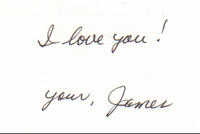 I love you!
your, James